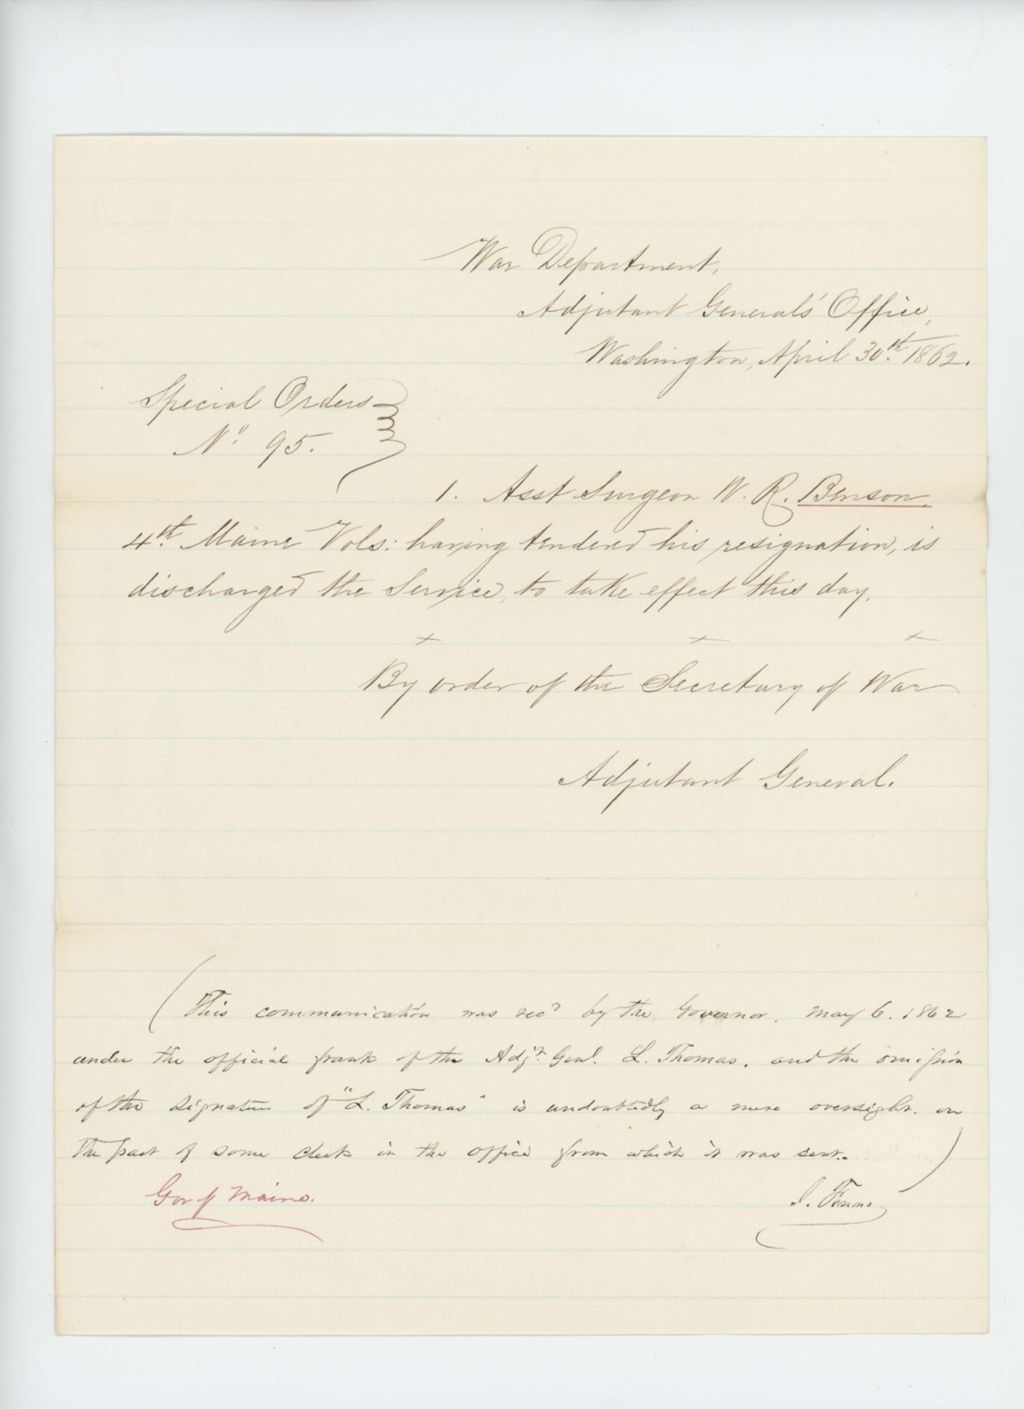 War Department,
Adjutant Generals' Office,
Washington, April 30th. 1862.
Special Orders
No. 95.
1. Asst Surgeon W. R. Benson,
4th. Maine Vols: having tendered his resignation, is
discharged the Service, to take effect this day.
x x x
By order of the Secretary of War
Adjutant General.
(This communication was recd by the Governor. May 6. 1862
under the official frank of the Adjt. Genl. L. Thomas. and the omission
of the signature of "L. Thomas" is undoubtedly a mere oversight. on
the part of some clerk in the office from which it was sent.)
Gov of Maine.